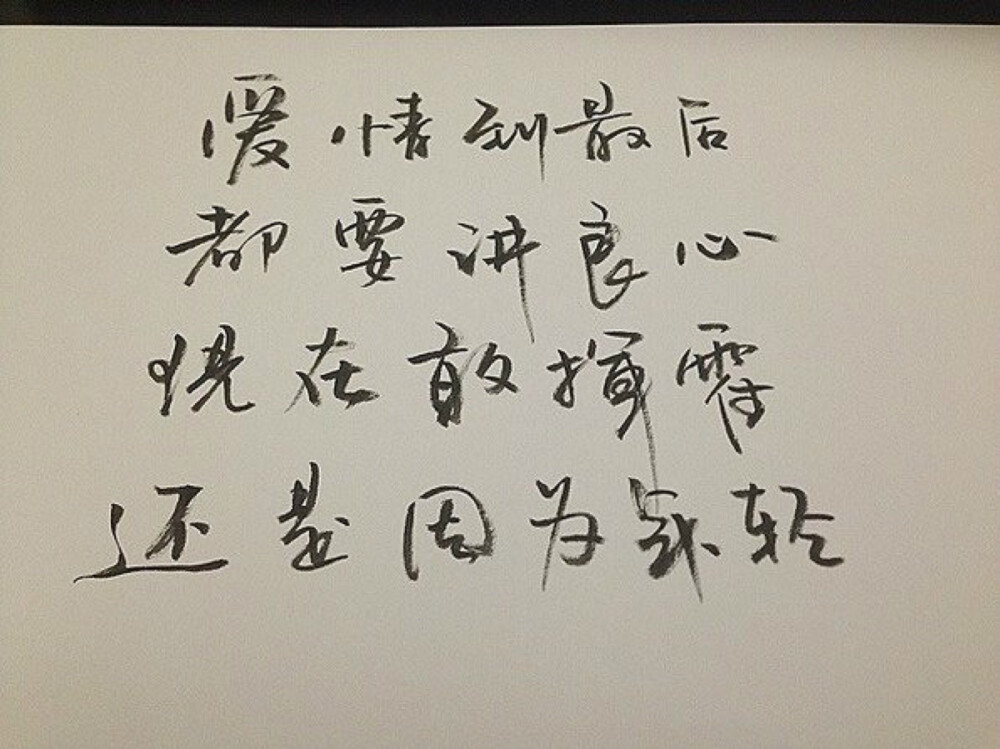 爱情到最后
都要讲良心
现在敢挥霍
还是因为年轻